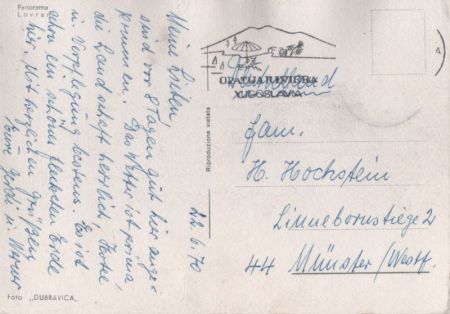 Panorama
Lovran
Meine Lieben,
sind vor 8 Tagen gut hier ange-
kommen. Das Wetter ist prima,
die Landschaft herrlich, Hotel
u. Verpflegung bestens. Es ist
schon ein schönes Erde
hier. Mit herzlichen Grüßen
Eure u. Werner
22.6.70
Foto „DUBRAVICA„
Riproduzione vietata
OPATIJA RIVIERA
YUGOSLAVIA
Fam.
H. Hochstein
Linnebornstiege 2
44 Münster/Westf.